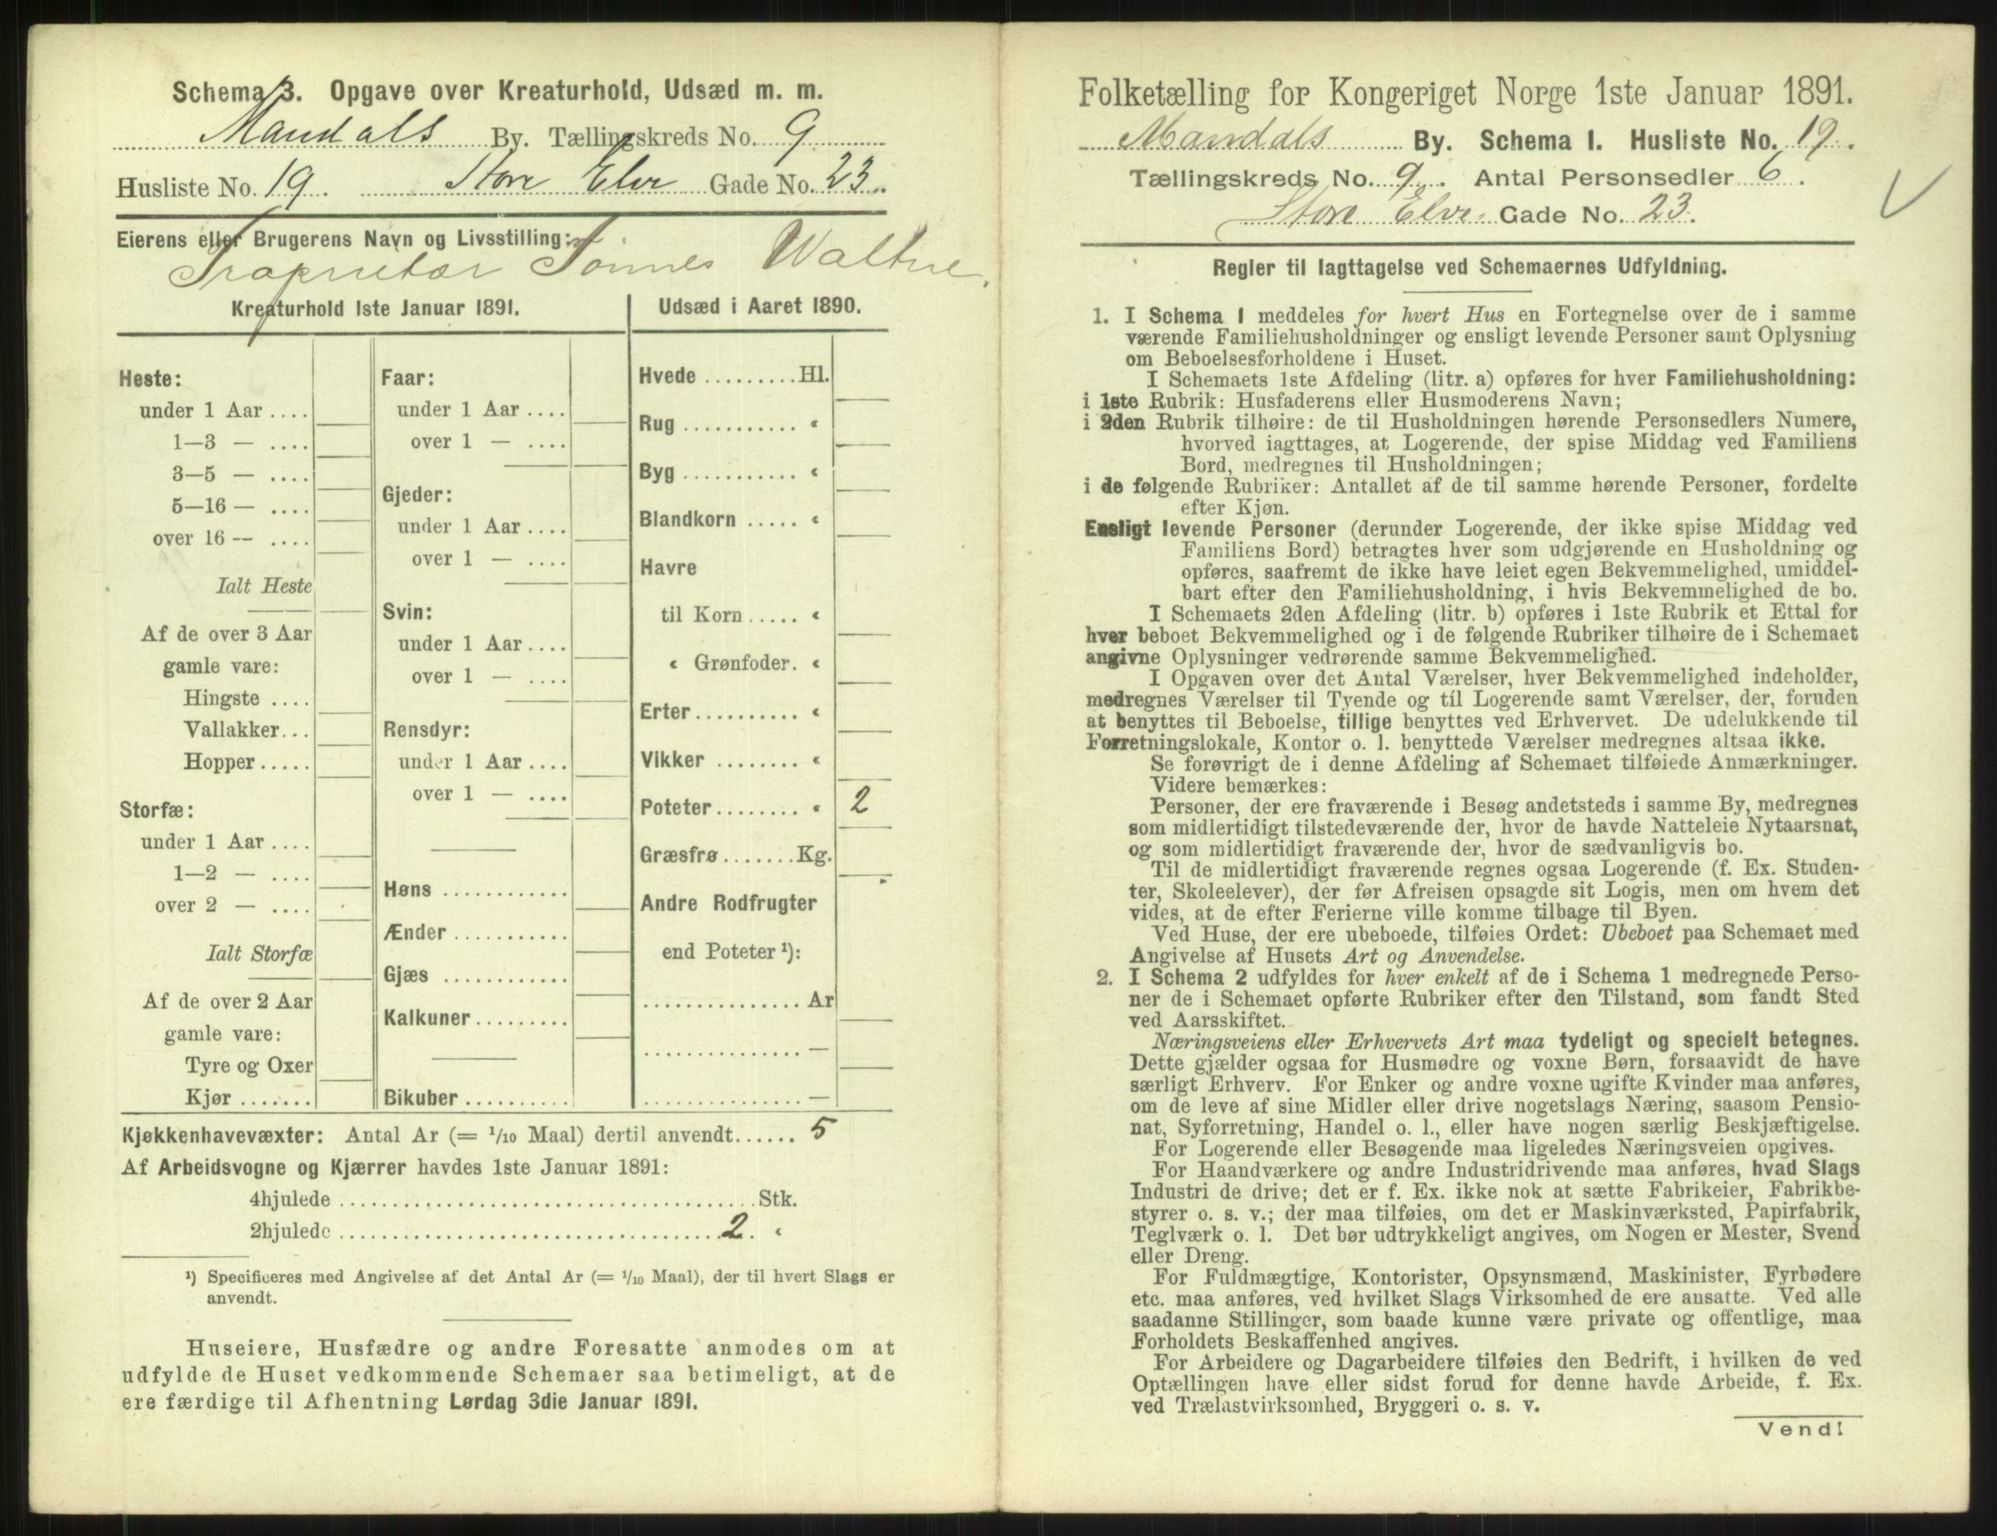 Schema 3. Opgave over Kreaturhold, Udsæd m. m.
Mandals By. Tællingskreds No. 9
Husliste No. 19. Store Elve Gade No. 23.
Eierens eller Brugerens Navn og Livsstilling:
Proprietær Tønnes Waltne.
Kreaturhold 1ste Januar 1891.
Heste:
under 1 Aar ....
1—3 — ....
3—5 — ....
5—16 — ....
over 16 — ....
Ialt Heste
Af de over 3 Aar
gamle vare:
Hingste ....
Vallakker...
Hopper.....
Storfæ:
under 1 Aar ....
1—2 — ....
over 2 — ....
Ialt Storfæ
Af de over 2 Aar
gamle vare:
Tyre og Oxer
Kjør .......
Faar:
under 1 Aar ....
over 1 — ....
Gjeder:
under 1 Aar ....
over 1 — ....
Svin:
under 1 Aar ....
over 1 — ....
Rensdyr:
under 1 Aar ....
over 1 — ....
Høns ............
Ænder ...........
Gjæs ............
Kalkuner.........
Bikuber ..........
Udsæd i Aaret 1890.
Hvede .........Hl.
Rug ........... «
Byg ........... «
Blandkorn ..... «
Havre
til Korn ..... «
« Grønfoder. «
Erter.......... «
Vikker ........ «
Poteter........ « 2
Græsfrø.......Kg.
Andre Rodfrugter
end Poteter ¹):
............... Ar
............... —
............... —
Kjøkkenhavevæxter: Antal Ar (= 1/10 Maal) dertil anvendt...... 5
Af Arbeidsvogne og Kjærrer havdes 1ste Januar 1891:
4hjulede ....................................Stk.
2hjulede .................................2. «
¹) Specificeres med Angivelse af det Antal Ar (= 1/10 Maal), der til hvert Slags er
anvendt.
Huseiere, Husfædre og andre Foresatte anmodes om at
udfylde de Huset vedkommende Schemaer saa betimeligt, at de
ere færdige til Afhentning Lørdag 3die Januar 1891.
Folketælling for Kongeriget Norge 1ste Januar 1891.
Mandals By. Schema I. Husliste No. 19.
Tællingskreds No. 9. Antal Personsedler 6.
Store Elve Gade No. 23.
Regler til Iagttagelse ved Schemaernes Udfyldning.
1. I Schema I meddeles for hvert Hus en Fortegnelse over de i samme
værende Familiehusholdninger og ensligt levende Personer samt Oplysning
om Beboelsesforholdene i Huset.
I Schemaets 1ste Afdeling (litr. a) opføres for hver Familiehusholdning:
i 1ste Rubrik: Husfaderens eller Husmoderens Navn;
i 2den Rubrik tilhøire: de til Husholdningen hørende Personsedlers Numere,
hvorved iagttages, at Logerende, der spise Middag ved Familiens
Bord, medregnes til Husholdningen;
i de følgende Rubriker: Antallet af de til samme hørende Personer, fordelte
efter Kjøn.
Ensligt levende Personer (derunder Logerende, der ikke spise Middag ved
Familiens Bord) betragtes hver som udgjørende en Husholdning og
opføres, saafremt de ikke have leiet egen Bekvemmelighed, umiddel-
bart efter den Familiehusholdning, i hvis Bekvemmelighed de bo.
I Schemaets 2den Afdeling (litr. b) opføres i 1ste Rubrik et Ettal for
hver beboet Bekvemmelighed og i de følgende Rubriker tilhøire de i Schemaet
angivne Oplysninger vedrørende samme Bekvemmelighed.
I Opgaven over det Antal Værelser, hver Bekvemmelighed indeholder,
medregnes Værelser til Tyende og til Logerende samt Værelser, der, foruden
at benyttes til Beboelse, tillige benyttes ved Erhvervet. De udelukkende til
Forretningslokale, Kontor o. l. benyttede Værelser medregnes altsaa ikke.
Se forøvrigt de i denne Afdeling af Schemaet tilføiede Anmærkninger.
Videre bemærkes:
Personer, der ere fraværende i Besøg andetsteds i samme By, medregnes
som midlertidigt tilstedeværende der, hvor de havde Natteleie Nytaarsnat,
og som midlertidigt fraværende der, hvor de sædvanligvis bo.
Til de midlertidigt fraværende regnes ogsaa Logerende (f. Ex. Studen-
ter, Skoleelever), der før Afreisen opsagde sit Logis, men om hvem det
vides, at de efter Ferierne ville komme tilbage til Byen.
Ved Huse, der ere ubeboede, tilføies Ordet: Ubeboet paa Schemaet med
Angivelse af Husets Art og Anvendelse.
2. I Schema 2 udfyldes for hver enkelt af de i Schema 1 medregnede Perso-
ner de i Schemaet opførte Rubriker efter den Tilstand, som fandt Sted
ved Aarsskiftet.
Næringsveiens eller Erhvervets Art maa tydeligt og specielt betegnes.
Dette gjælder ogsaa for Husmødre og voxne Børn, forsaavidt de have
særligt Erhverv. For Enker og andre voxne ugifte Kvinder maa anføres,
om de leve af sine Midler eller drive nogetslags Næring, saasom Pensio-
nat, Syforretning, Handel o. l., eller have nogen særlig Beskjæftigelse.
For Logerende eller Besøgende maa ligeledes Næringsveien opgives.
For Haandværkere og andre Industridrivende maa anføres, hvad Slags
Industri de drive; det er f. Ex. ikke nok at sætte Fabrikeier, Fabrikbe-
styrer o. s. v.; der maa tilføies, om det er Maskinværksted, Papirfabrik,
Teglværk o. l. Det bør udtrykkeligt angives, om Nogen er Mester, Svend
eller Dreng.
For Fuldmægtige, Kontorister, Opsynsmænd, Maskinister, Fyrbødere
etc. maa anføres, ved hvilket Slags Virksomhed de ere ansatte. Ved alle
saadanne Stillinger, som baade kunne være private og offentlige, maa
Forholdets Beskaffenhed angives.
For Arbeidere og Dagarbeidere tilføies den Bedrift, i hvilken de ved
Optællingen have eller sidst forud for denne havde Arbeide, f. Ex.
ved Trælastvirksomhed, Bryggeri o. s. v.
Vend!